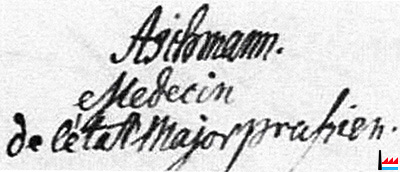 Aschmann.
Medecin
de l'état Major prussien.